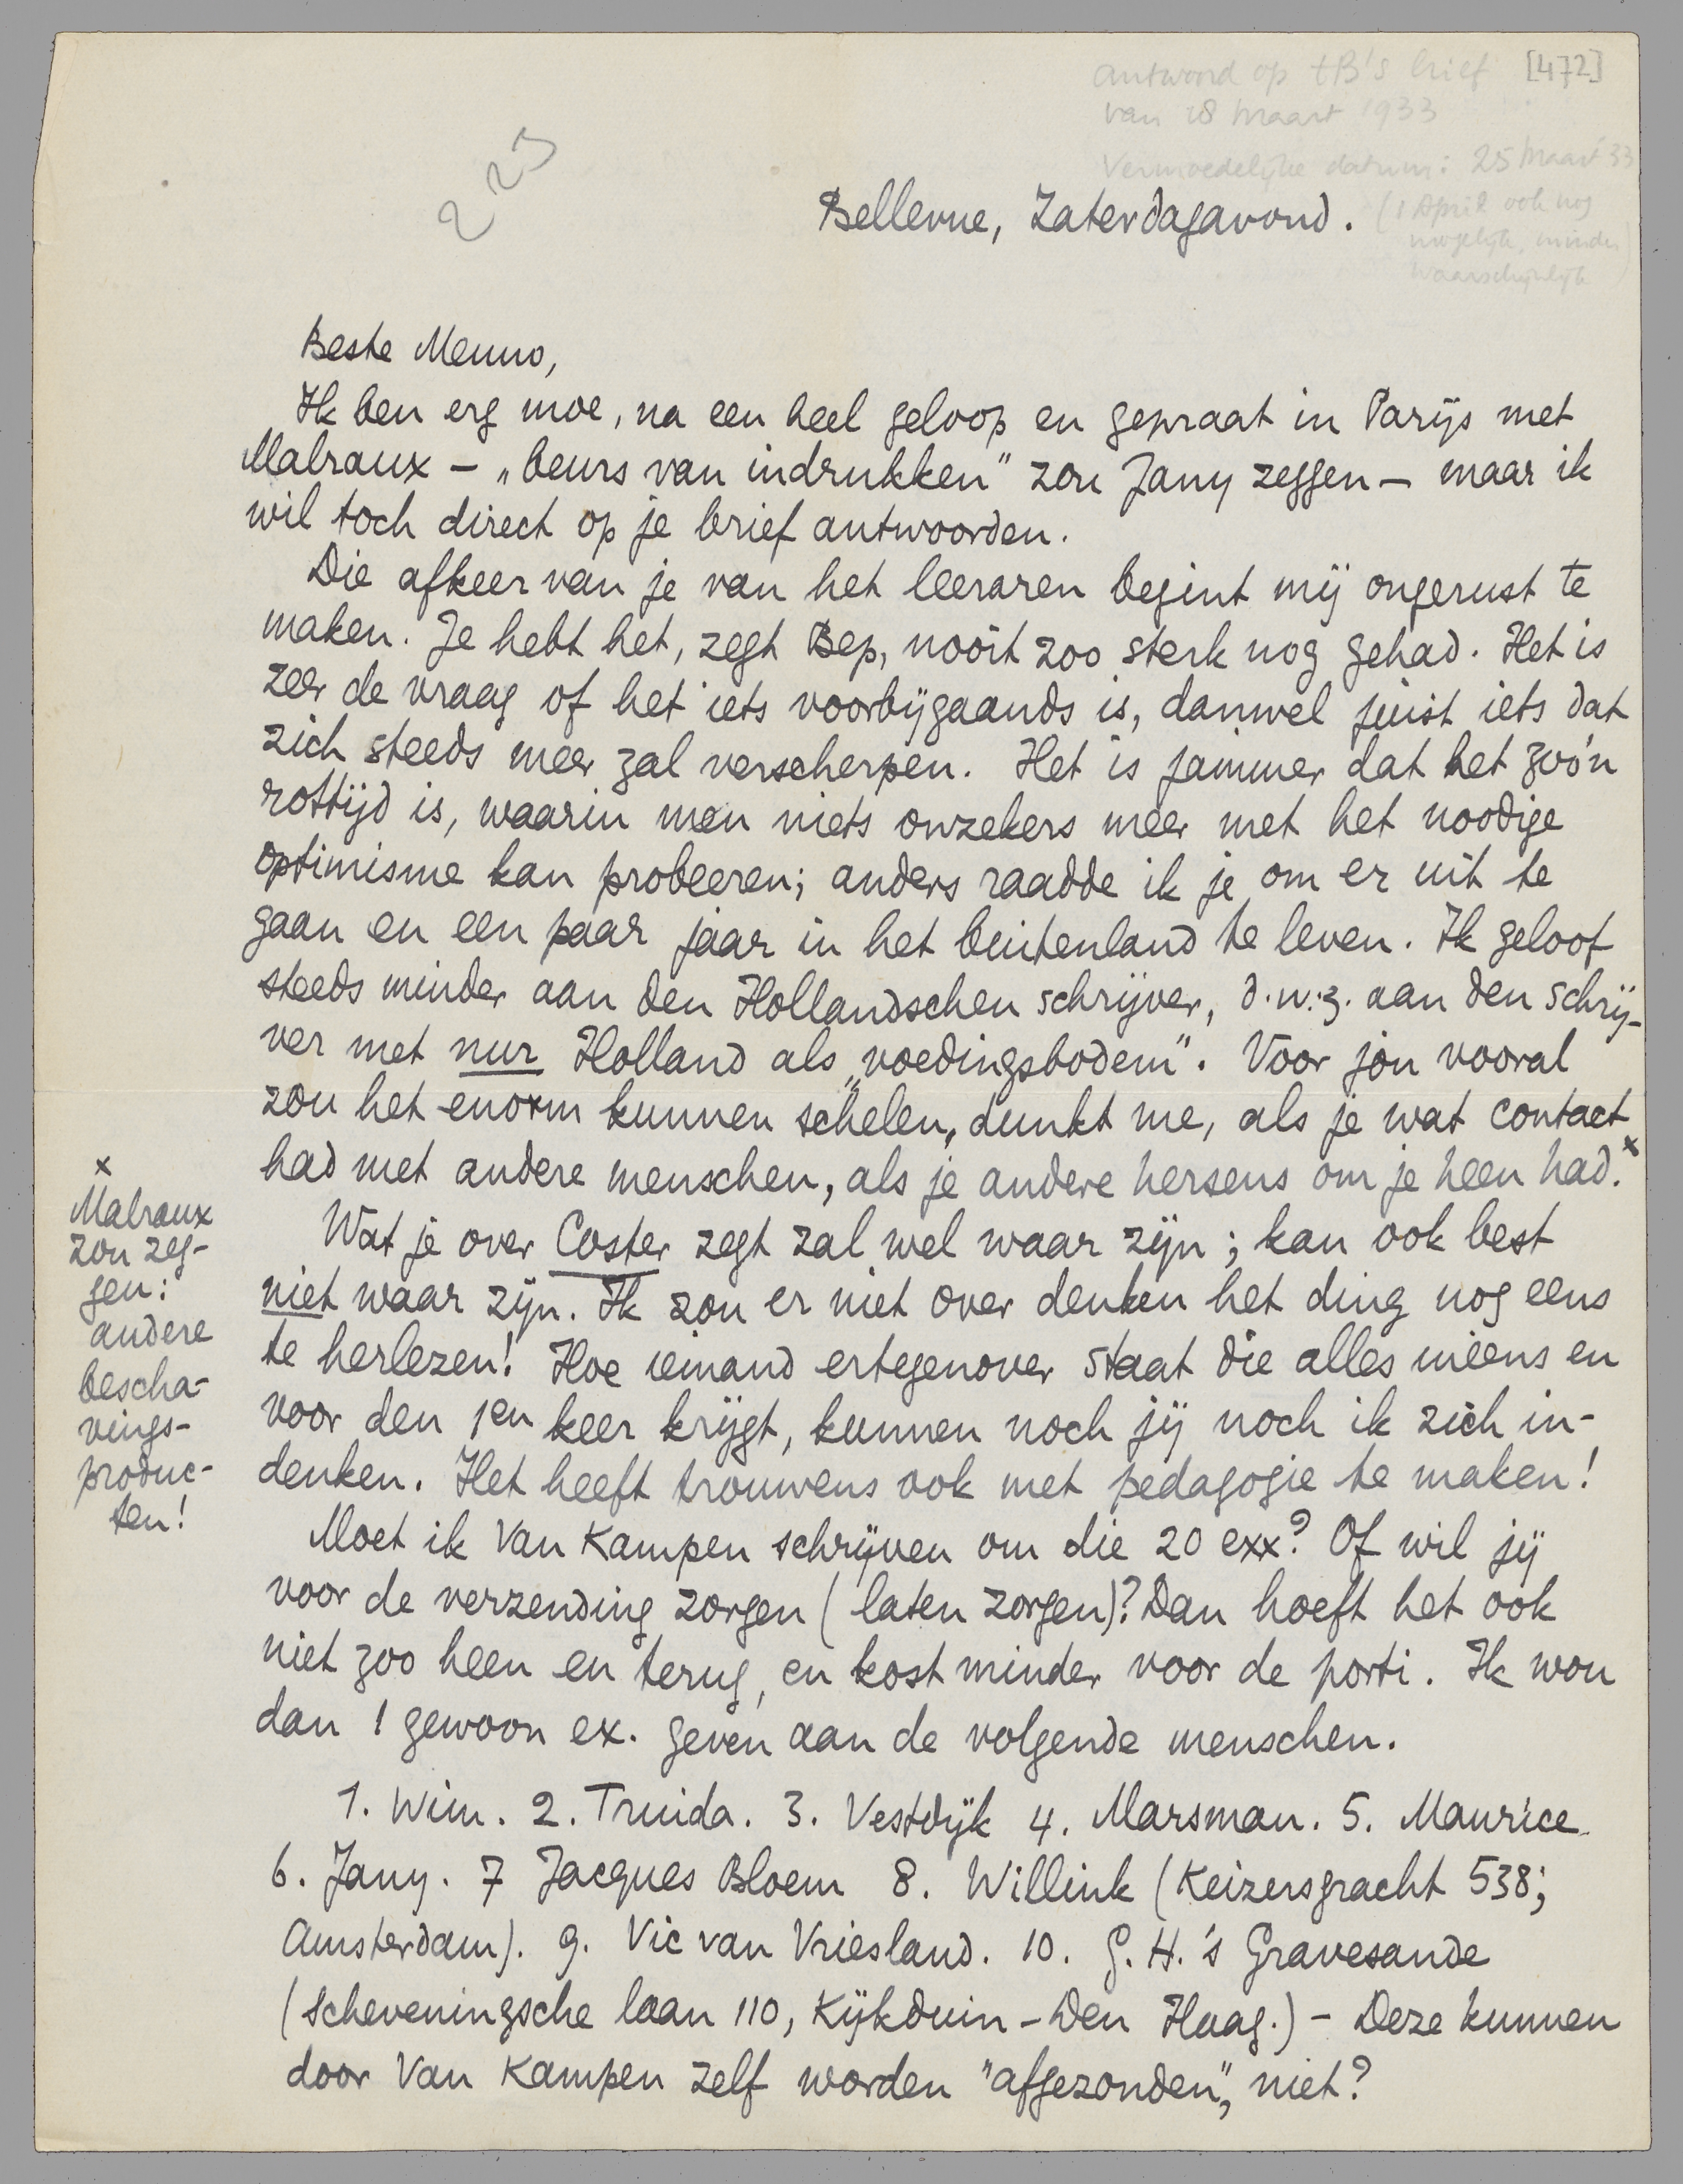 antwoord op tB's brief [472]
van 18 maart 1933
Vermoedelijke datum: 25 maart 33
(1 April ook nog
mogelijk, minder
waarschijnlijk)
223
Bellevue, Zaterdagavond.
Beste Menno,
Ik ben erg moe, na een heel geloop en gepraat in Parijs met
Malraux – „beurs van indrukken” zou Jany zeggen – maar ik
wil toch direct op je brief antwoorden.
Die afkeer van je van het leeraren begint mij ongerust te
maken. Je hebt het, zegt Bep, nooit zoo sterk nog gehad. Het is
zeer de vraag of het iets voorbijgaands is, danwel juist iets dat
zich steeds meer zal verscherpen. Het is jammer dat het zoo'n
rottijd is, waarin men niets onzekers meer met het noodige
optimisme kan probeeren; anders raadde ik je om er uit te
gaan en een paar jaar in het buitenland te leven. Ik geloof
steeds minder aan den Hollandschen schrijver, d.w.z. aan den schrij-
ver met nur Holland als „voedingsbodem”. Voor jou vooral
zou het enorm kunnen schelen, dunkt me, als je wat contact
had met andere menschen, als je andere hersens om je heen had.x
x
Malraux
zou zeg-
gen:
andere
bescha-
vings-
produc-
ten!
Wat je over Coster zegt zal wel waar zijn; kan ook best
niet waar zijn. Ik zou er niet over denken het ding nog eens
te herlezen! Hoe iemand ertegenover staat die alles inéens en
voor den 1en keer krijgt, kunnen noch jij noch ik zich in-
denken. Het heeft trouwens ook met pedagogie te maken!
Moet ik Van Kampen schrijven om die 20 exx? Of wil jij
voor de verzending zorgen (laten zorgen)? Dan hoeft het ook
niet zoo heen en terug, en kost minder voor de porti. Ik wou
dan 1 gewoon ex. geven aan de volgende menschen.
1. Wim. 2. Truida. 3. Vestdijk 4. Marsman. 5. Maurice
6. Jany. 7 Jacques Bloem 8. Willink (Keizersgracht 538;
Amsterdam). 9. Vic van Vriesland. 10. G. H. 's Gravesande
(Scheveningsche laan 110, Kijkduin – Den Haag.) – Deze kunnen
door Van Kampen zelf worden "afgezonden", niet?